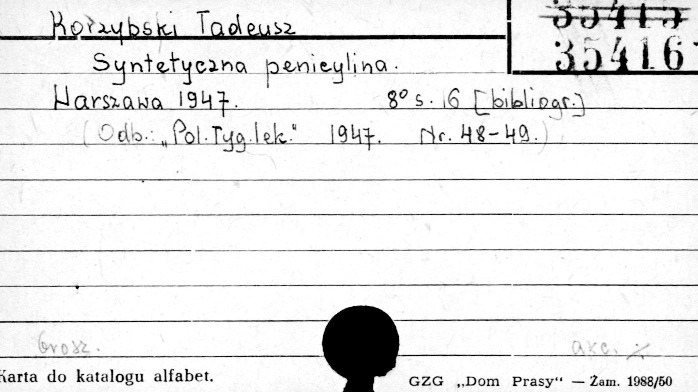 Korzybski Tadeusz
35415
35416
Syntetyczna penicylina.
Warszawa 1947. 8° s. 16 [bibliogr.]
(Odb.: „Pol. Tyg. lek." 1947. Nr. 48-49.)
Brosz. akc.
Karta do katalogu alfabet. GZG „Dom Prasy" — Zam. 1988/50